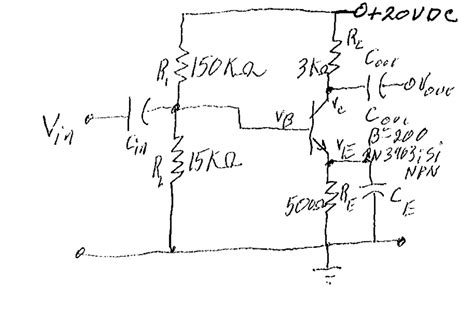 +20VDC
R1 150KΩ
RL
3KΩ
Cout
Vout
Vin
Cin
VB
Vc
Cout
β=200
2N3403; Si
NPN
VE
R2 15KΩ
500Ω RE
CE